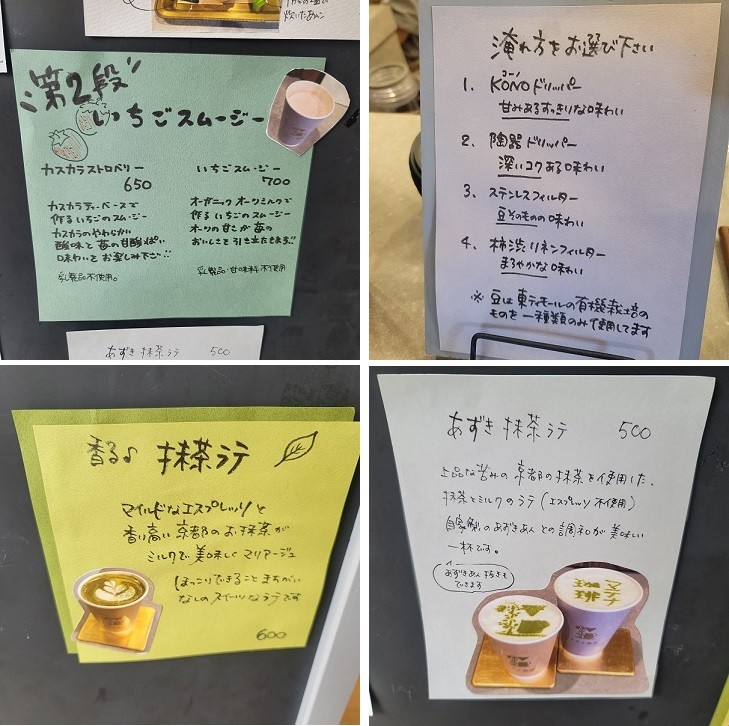 炊いたあんこ
第2段
いちごスムージー
カスカラストロベリー
650
カスカラティーベースで
作るいちごのスムージー
カスカラのやわらかい
酸味と苺の甘酸っぱい
味わいをお楽しみ下さい
乳製品不使用。
いちごスムージー
700
オーガニックオーツミルクで
作るいちごのスムージー
オーツの甘さが苺の
おいしさを引き立たせます!!
乳製品・甘味料不使用
あずき抹茶ラテ 500
淹れ方をお選び下さい
コーノ
1. KŌNOドリッパー
甘みあるすっきりな味わい
2. 陶器ドリッパー
深いコクある味わい
3. ステンレスフィルター
豆そのものの味わい
4. 柿渋リネンフィルター
まろやかな味わい
※豆は東ティモールの有機栽培の
ものを一種類のみ使用してます
香る♪ 抹茶ラテ
マイルドなエスプレッソと
香り高い京都のお抹茶が
ミルクで美味しくマリアージュ
ほっこりできることまちがい
なしのスイーツなラテです
600
あずき抹茶ラテ 500
上品な苦みの京都の抹茶を使用した、
抹茶とミルクのラテ(エスプレッソ不使用)
自家製のあずきあんとの調和が美味しい
一杯です。
あずきあん抜きも
できます
マテナ
珈琲